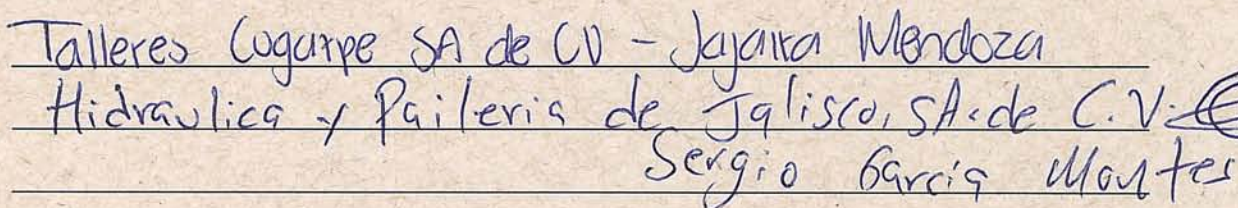 Talleres Cogarpe SA de CV - Jajaira Mendoza
Hidraulica y Paileria de Jalisco, SA. de C.V.
Sergio Garcia Montes